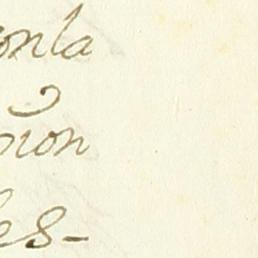 onla
nion
les-